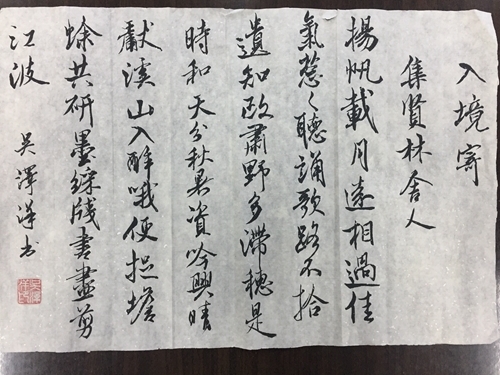 入境寄
集賢林舍人
揚帆載月遠相過佳
氣葱々聽誦歌路不拾
遺知政肅野多滯穗是
時和天分秋暑資吟興晴
獻溪山入醉哦便捉蟾
蜍共研墨綵牋書盡剪
江波
吳澤洋书